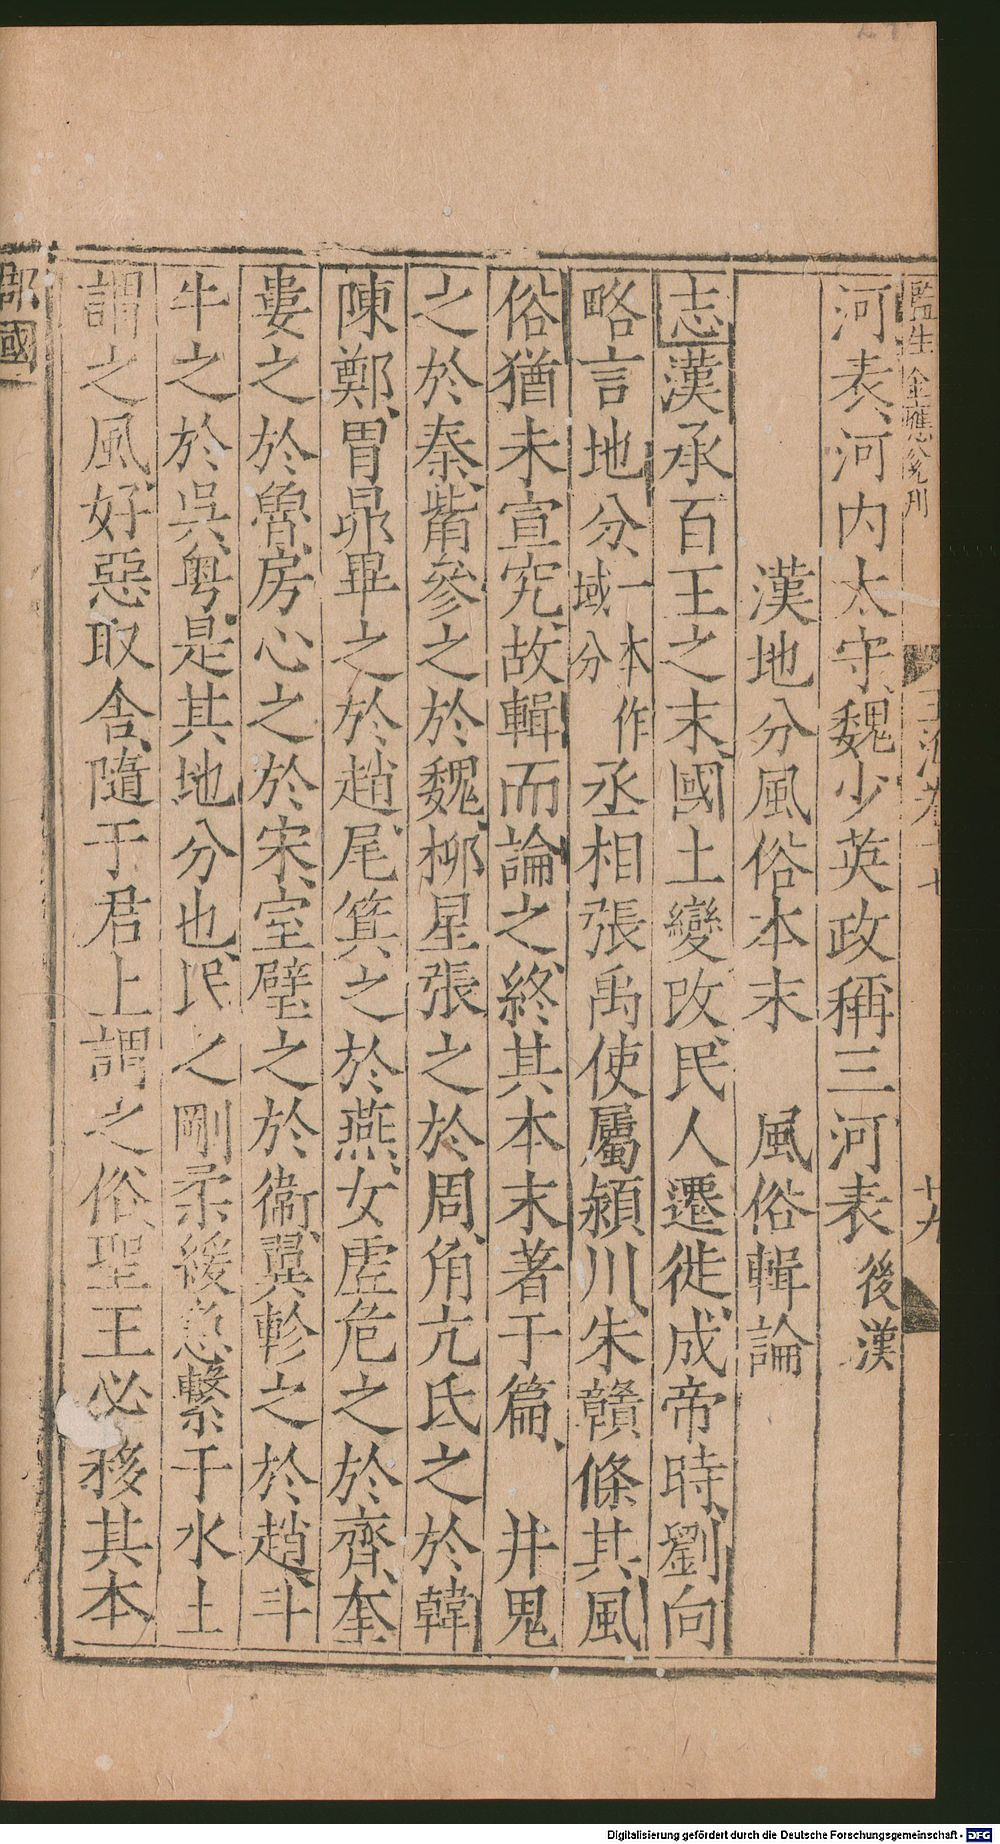 監生金應奎刊　玉海卷十七　廿九
河表、河内太守魏少英政稱三河表後漢
漢地分風俗本末　風俗輯論
志漢承百王之末、國土變改、民人遷徙、成帝時、劉向
略言地分、一本作域分丞相張禹使屬潁川、朱贛條其風
俗猶未宣究、故輯而論之、終其本末著于篇、井鬼
之於秦、觜參之於魏、栁星張之於周、角亢氐之於韓
陳鄭、胃昴畢之於趙、尾箕之於燕、女虚危之於齊、奎
婁之於魯、房心之於宋、室壁之於衞、翼軫之於趙、斗
牛之於吳粤、是其地分也、民之剛柔緩急繫于水土
謂之風、好惡取舍、隨于君上謂之俗、聖王必移其本
郡國
Digitalisierung gefördert durch die Deutsche Forschungsgemeinschaft - DFG